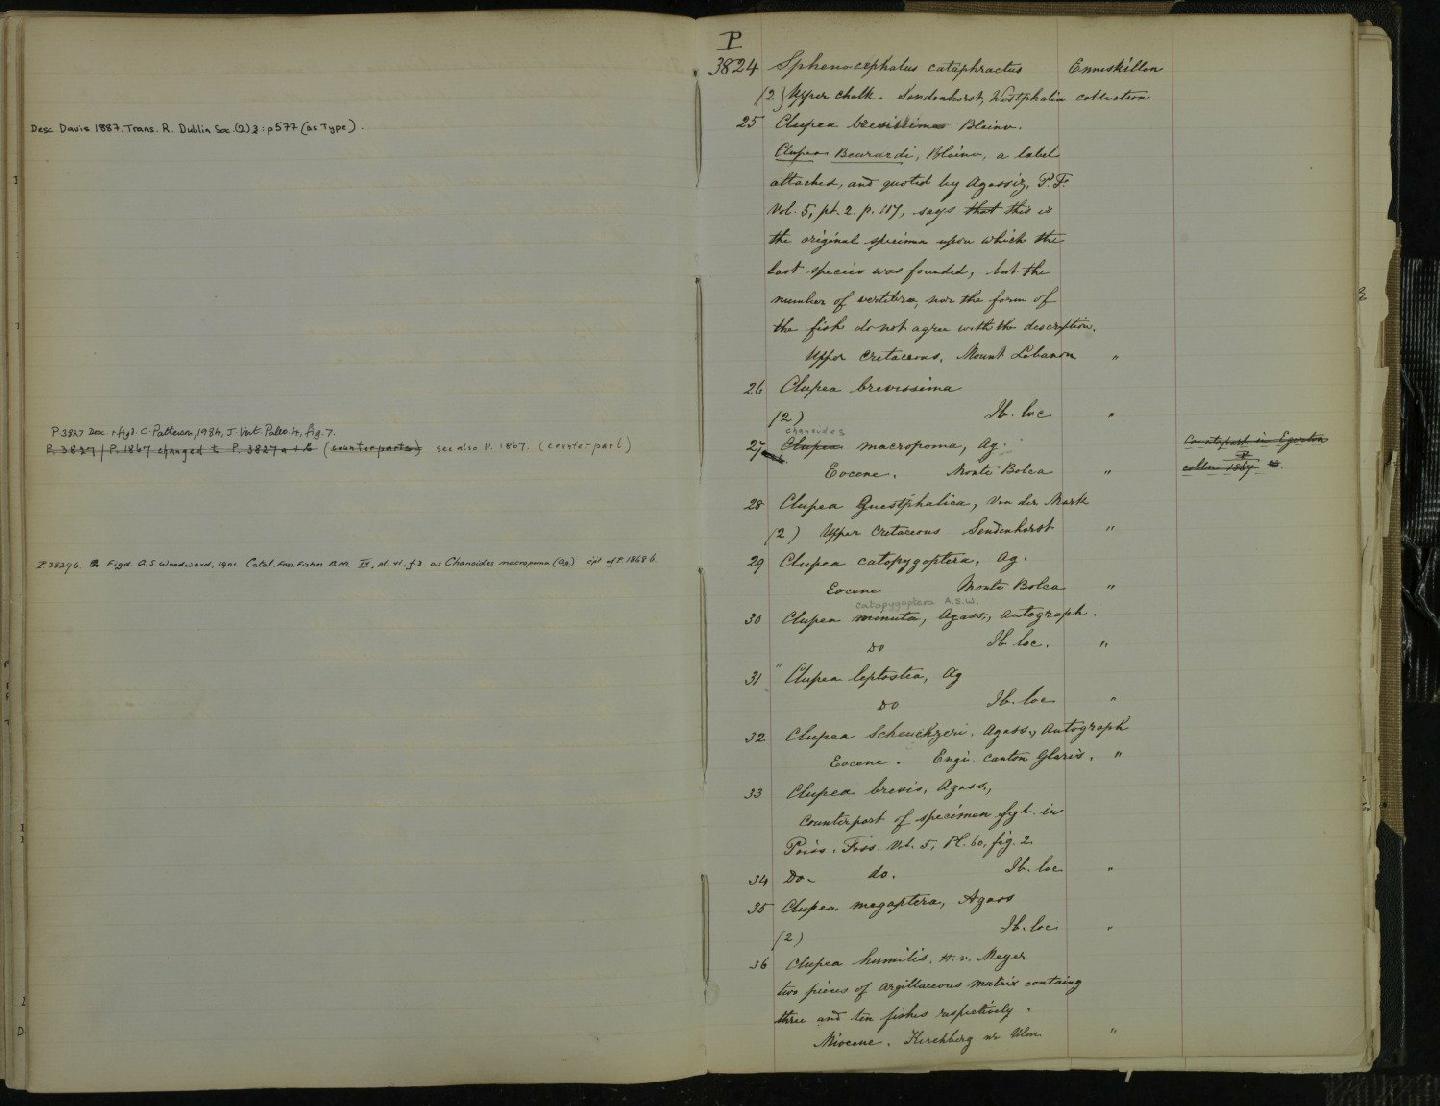 Desc Davis 1887. Trans. R. Dublin Soc. (2) 3 : p 577 (as Type).
P 3827 Desc. + figd. C. Patterson, 1984, J. Vert. Paleo. 4, fig. 7.
P. 3827 / P. 1867 changed to P. 3827 a + b (counterparts) see also P. 1867. (counterpart)
P 3829 b. Figd A.S Woodward, 1901 Catal. Foss. Fishes B.M. IV, pl. vi. f. 3 as Chanoides macropoma (Ag) cpt of P. 1868 b
P
3824 Sphenocephalus cataphractus Enniskillen
(2) Upper Chalk. Sendenhorst, Westphalia collection
25 Clupea brevissima Blainv.
Clupea Beurardi, Blainv, a label
attached, and quoted by Agassiz, P. F.
Vol. 5, pt. 2 p. 117, says that this is
the original specimen upon which the
last species was founded, but the
number of vertebræ, nor the form of
the fish do not agree with the description.
Upper Cretaceous. Mount Lebanon "
26 Clupea brevissima
(2) Ib. loc "
chanoides
27 Clupea macropoma, Ag. Counterpart in Egerton
Eocene. Monte Bolca " colln P 1867
28 Clupea Guestphalica, Von der Mark
(2) Upper Cretaceous Sendenhorst "
29 Clupea catopygoptera, Ag.
Eocene Monte Bolca "
catopygoptera A.S.W.
30 Clupea minuta, Agass., Autograph.
Do Ib. loc. "
31 " Clupea leptostea, Ag
Do Ib. loc "
32 Clupea Scheuchzeri. Agass., Autograph
Eocene. Engi. Canton Glaris. "
33 Clupea brevis, Agass.,
Counterpart of specimen figd. in
Poiss. Foss. Vol. 5, Pl. 60, fig. 2
34 Do do. Ib. loc "
35 Clupea megaptera, Agass
(2) Ib. loc "
36 Clupea humilis, H. v. Meyer
two pieces of argillaceous matrix containg
three and ten fishes respectively.
Miocene. Kirchberg nr Ulm "